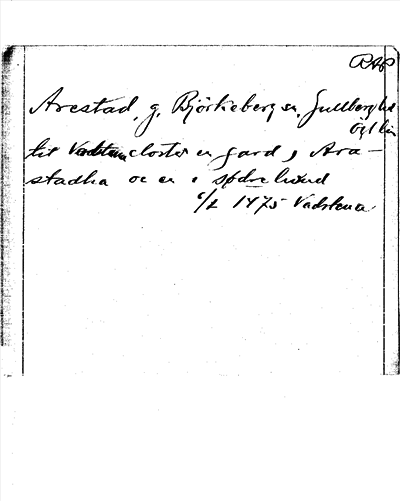 RAP
Arestad, g. Björkeberg sn, Gullbergs hd
Ögl län
till Vadstena closter en gard j Ara-
stadha oc en i sødra lund
6/2 1475 Vadstena